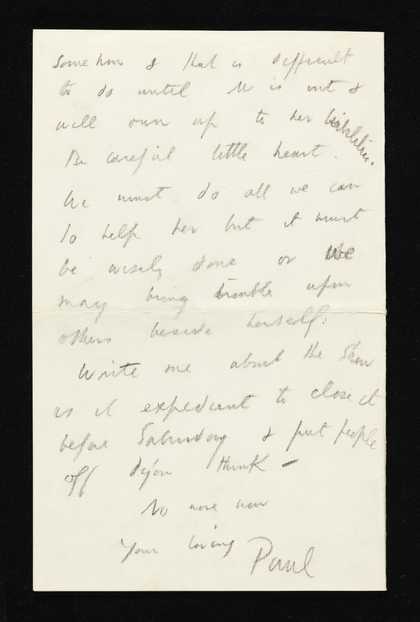 some how & that is difficult
to do until M is out &
will own up to her
Be careful little heart.
We must do all we can
to help her but it must
be wisely done or we
may bring trouble upon
others beside herself.
Write me about the Show
is it expedient to close it
before Saturday & put people
off d'you think —
No more now
Your loving Paul